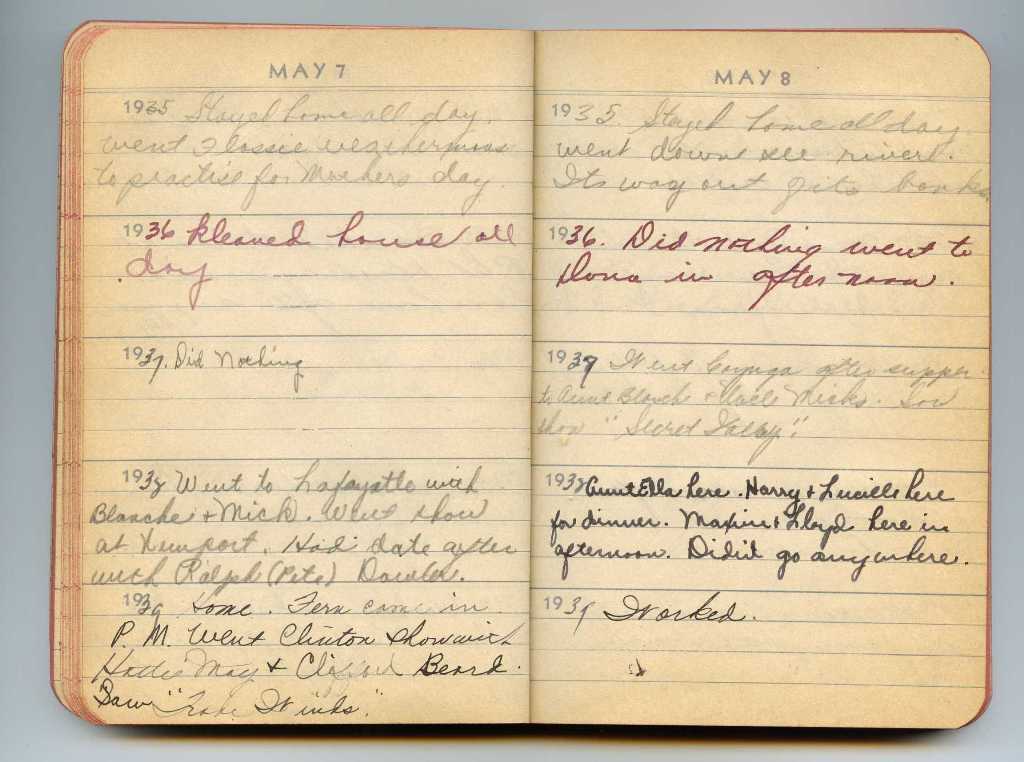 MAY 7
1935 Stayed home all day.
went Flossie
to practise for Mothers day
1936 kleaned house all
day
1937. Did Nothing
1938 Went to Lafayatte with
Blanche + Mick. Went show
at Newport. Had date after
with Ralph (Pete)
1939 Home. Fern come in
P. M. Went Clinton show with
Hattie May + Clifford Beard.
Saw "Trade Winds."
MAY 8
1935. Stayed home all day
went down see river.
Its way out of its banks.
1936. Did nothing went to
Dona in after noon.
1937 Went Cayuga after supper
to Aunt Blanch + Uncle Micks. Saw
show "Secret Valley".
1938 Aunt Ella here. Harry + Lucille here
for dinner. Maxine + Lloyd here in
afternoon. Didn't go anywhere.
1939 Worked.